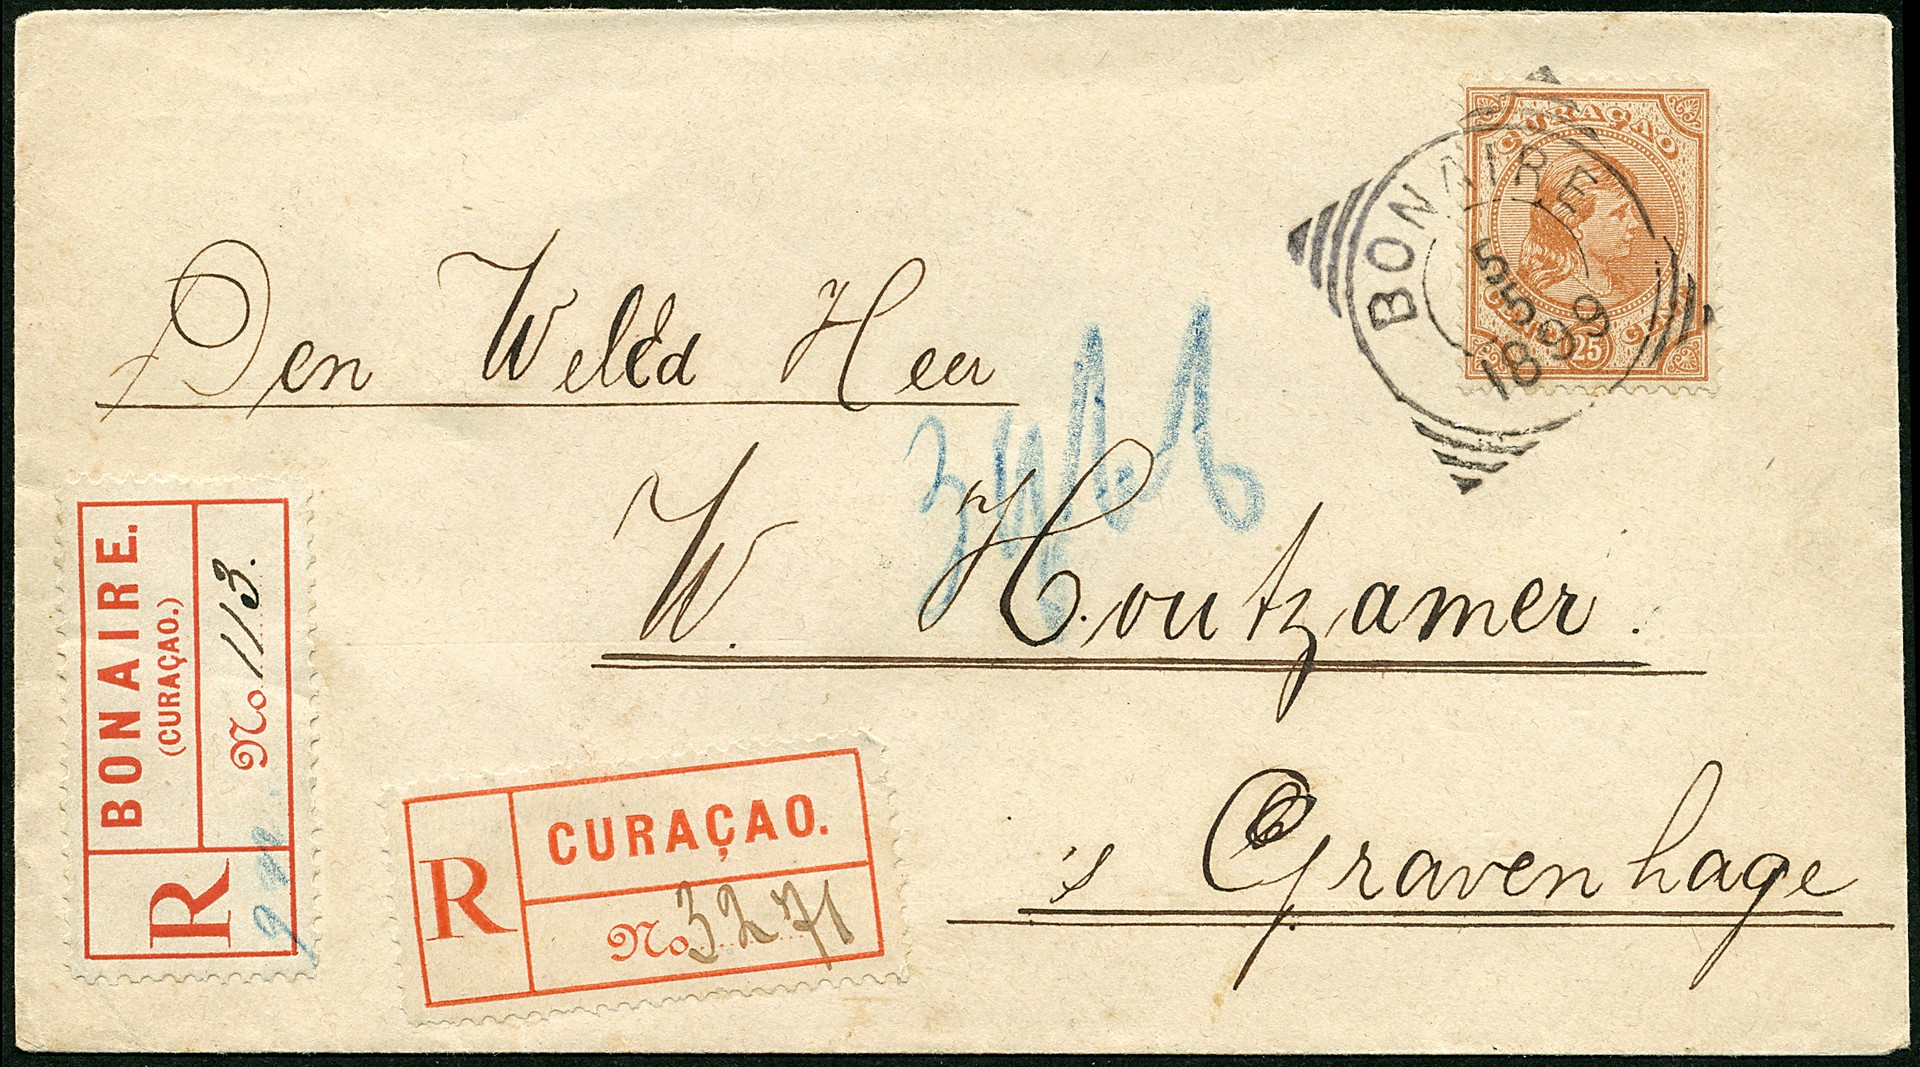 CURAÇAO
CENT 25 CENT
BONAIRE
5 5
1896
Den Weled Heer
W. Houtzamer.
's Gravenhage
BONAIRE.
(CURAÇAO.)
R No 113.
CURAÇAO.
R No 3271